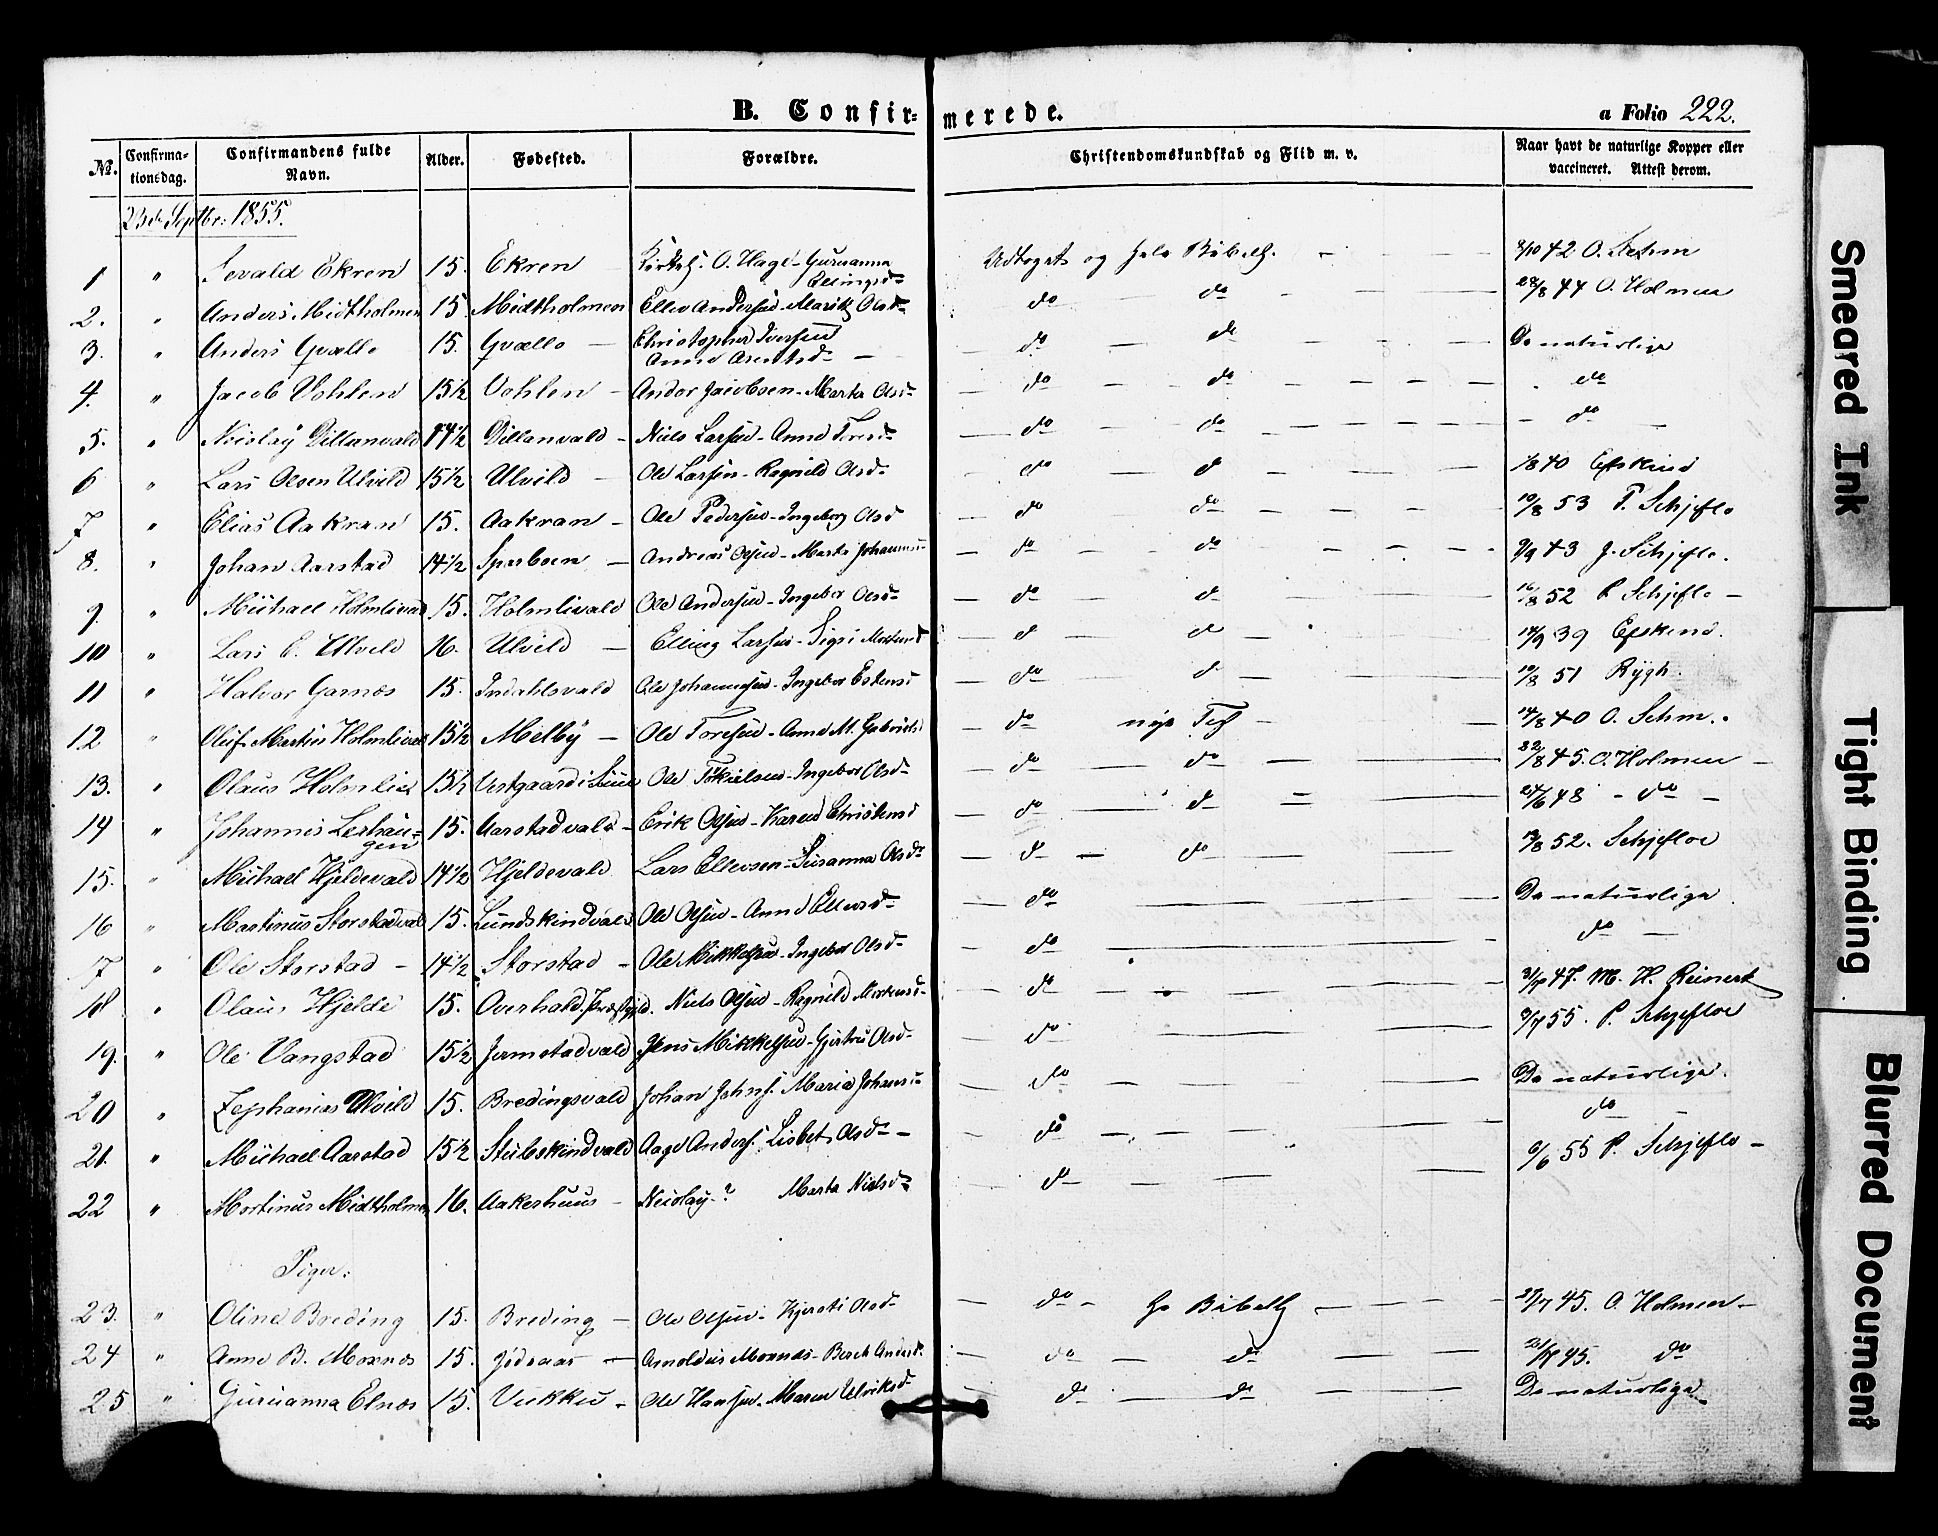 B. Confir- merede. a Folio 222.
No. Confirma-tionsdag. Confirmandens fulde Navn. Alder. Fødested. Forældre. Christendomskundskab og Flid m. v. Naar havt de naturlige Kopper eller vaccineret. Attest derom.
23de Septbr: 1855.
1 " Sevald Ekren 15. Ekren O. Hage - Guruanna Ellingsd. Udtoget og hele Bibelh. 42 O.
2. " Anders Midtholmen 15. Midtholmen Ellev Andersen - Marith Olsd. do do 28/8 44 O. Holmen
3. " Anders Qvælle 15. Qvælle Christopher Iversen Anne Arentsd. do do De naturlige
4. " Jacob Vohlen 15½ Vohlen Andor Jacobsen - Marta Olsd. do do do
5. " Nicolay Dillanvald 14½ Dillanvald Niels Larsen - Anne Toresd. do do do
6 " Lars Olsen Ulvild 15½ Ulvild Ole Larsen - Ragnild Olsd. do do 40 Efskind
7 " Elias Aakran 15. Aakran Ole Pedersen - Ingeborg Olsd do do 10/8 53 P. Schjeflo
8. " Johan Aarstad 14½ Sparboen Andreas Olsen - Marta do do 9/9 43 J. Schjeflo.
9. " Michael Holmlivald 15. Holmlivald Ole Andersen - Ingebor Olsd. do do 16/8 52 P Schjeflo
10 " Lars E. Ulvild 16. Ulvild Elling Larsen - Sigri do do 14/9 39 Efskind.
11 " Halvor Garnæs 15. Indahlsvald Ole Johannesen - Ingebor do do 10/8 51 Rygh.
12 " Oluf Martin 15½ Melby Ole Toresen - Anne M. do nye Test 14/8 40 O. Schm.
13. " Olaus Holmlien 15½ Vestgaard i Ole - Ingebor Olsd. do do 22/8 45. O. Holmen
14 " Johannis Lerhaugen 15. Aarstadvald Erik Olsen - Karen do do 24/6 48 do
15. " Michael Hjeldevald 14½ Hjeldevald Lars Ellevsen - Susanna Olsd do do 19/8 52. Schjefloe
16 " Martinus Storstadvald 15. Lundskindvald Ole Olsen - Anne Ellevsd. do De naturlige
17 " Ole Storstad 14½ Storstad Ole Mikkelsen - Ingebor Olsd. do do
18 " Olaus Hjelde 15. Overhald. Præstgjd. Niels Olsen - Ragnild do 47. M. H. Reinert
19. " Ole Vangstad 15½ Jermstadvald Jens Mikkelsen - Gjertru Olsd. do 55. P. Schjefloe
20 " Zephanias Ulvild 15. Bredingsvald Johan Johns. Maria do De naturlige.
21. " Michael Aarstad 15½ Stubskindvald Aage Anders. Lisbet Olsd. do do
22 " Mortinus Midtholmen 16. Aakershuus Nicolay ? Marta Nielsd. do 6/6 55 P. Schjeflo
Piger:
23. " Oline Breding 15. Breding Ole Olsen - Kjersti Olsd. do he Bibelh 27/7 45. O. Holmen
24 " Anne B. Moxnæs 15. Jødsaas Arnoldus Moxnæs - Beret do do 45. do
25 " Guruanna Elnæs 15. Vukku Ole Hansen - Maren Ulriksd. do do De naturlige
Smeared Ink
Tight Binding
Blurred Document